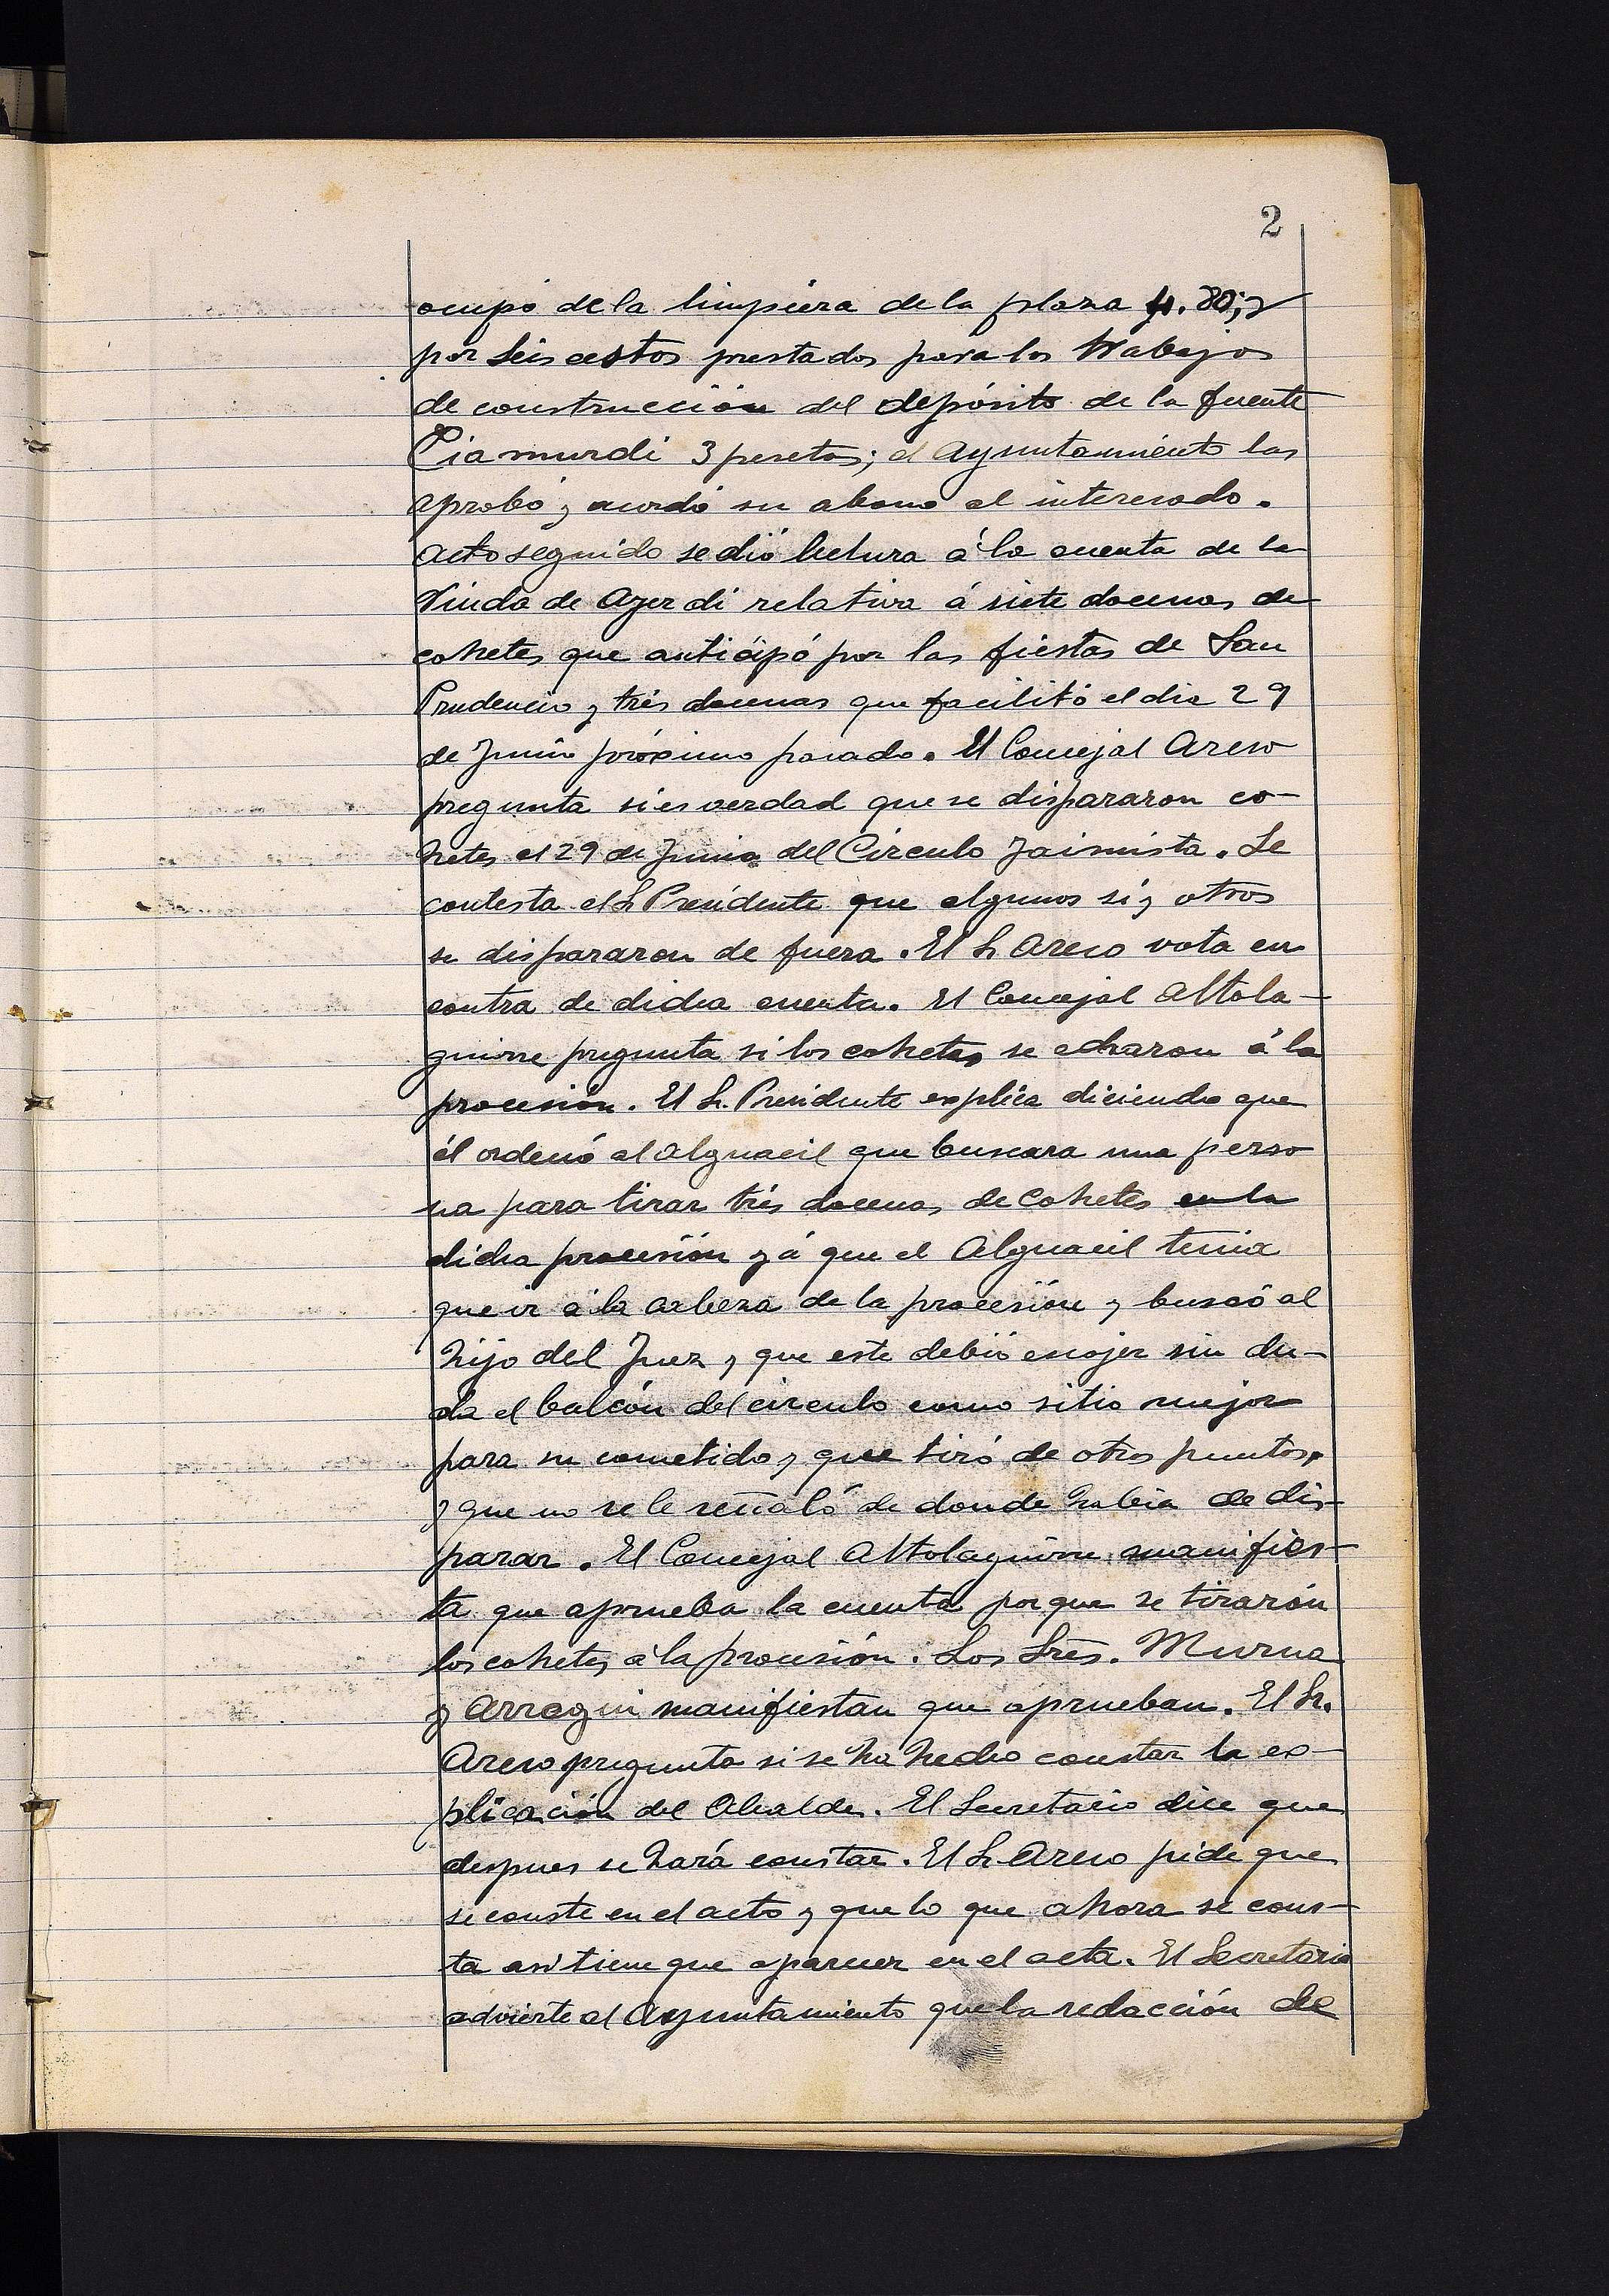 2
ocupó de la limpieza de la plaza 4.80; y
por seis cestos prestados para los trabajos
de construcción del depósito de la fuente
Ciamurdi 3 pesetas; el Ayuntamiento las
aprobó y acordó su abono al interesado.
Acto seguido se dió lectura á la cuenta de la
Viuda de Azerdi relativa á siete docenas de
cohetes que anticipó por las fiestas de San
Prudencio y trés docenas que facilitó el dia 29
de Junio próximo pasado. El Concejal Areso
pregunta si es verdad que se dispararon co-
hetes el 29 de Junio del Circulo Jaimista. Le
contesta el Sr Presidente que algunos sí y otros
se dispararon de fuera. El Sr Areso vota en
contra de dicha cuenta. El Concejal Altola-
guirre pregunta si los cohetes se echaron á la
procesión. El Sr. Presidente explica diciendo que
él ordenó al alguacil que buscara una perso
na para tirar trés docenas de cohetes en la
dicha procesión yá que el Alguacil tenia
que ir á la cabeza de la procesión y buscó al
hijo del Juez y que este debió escojer sin du-
da el balcón del circulo como sitio mejor
para su cometido y que tiró de otros puntos,
y que no se le señaló de donde habia de dis-
parar. El Concejal Altolaguirre manifies-
ta que aprueba la cuenta porque se tirarón
los cohetes á la procesión. Los Sres. Murua
y Arregui manifiestan que aprueban. El Sr.
Areso pregunta si se ha hecho constar la ex-
plicación del Alcalde. El Secretario dice que
despues se hará constar. El Sr Areso pide que
se conste en el acto y que lo que ahora se cons-
ta así tiene que aparecer en el acta. El Secretario
advierte al Ayuntamiento que la redacción de